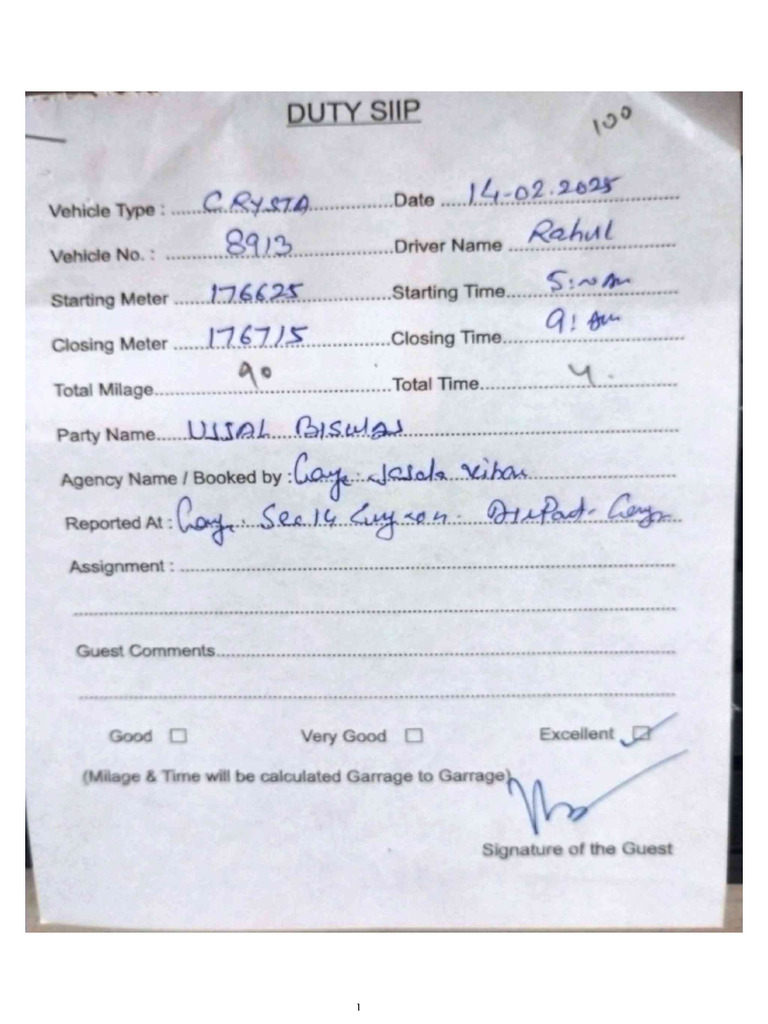 DUTY SIIP
100
Vehicle Type : CRYSTA Date 14-02.2025
Vehicle No. : 8913 Driver Name Rahul
Starting Meter 176625 Starting Time 5:
Closing Meter 176715 Closing Time 9: Am
Total Milage 90 Total Time 4.
Party Name UJJAL BISWAS
Agency Name / Booked by :
Reported At : Sec 14
Assignment :
Guest Comments
Good Very Good Excellent
(Milage & Time will be calculated Garrage to Garrage)
Signature of the Guest
1